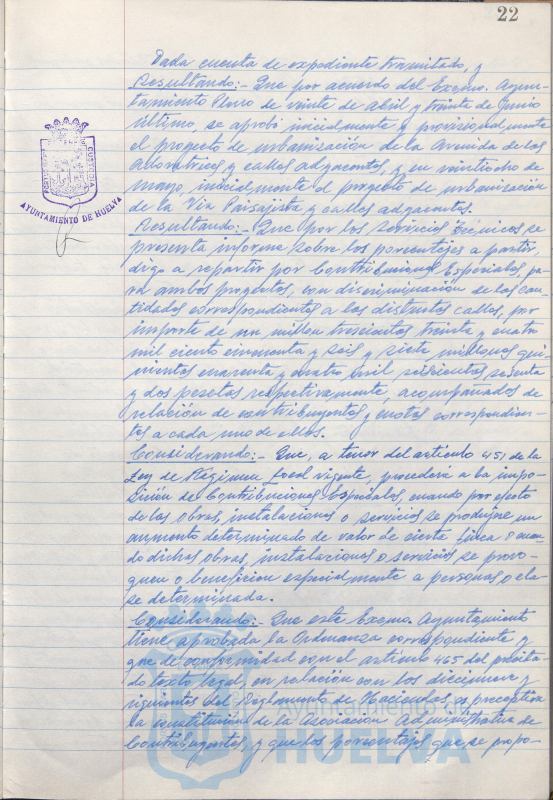 22
Dada cuenta de expediente tramitado, y
Resultando:- Que por acuerdo del Excmo. Ayun-
tamiento Pleno de veinte de abril y treinta de Junio
último, se aprobó inicialmente y provisionalmente
el proyecto de urbanización de la Avenida de las
adoratrices y calles adyacentes, y en veintiocho de
mayo, inicialmente el proyecto de urbanización
de la Via Paisajista y calles adyacentes.
Resultando:- Que por los servicios técnicos se
presenta informe sobre los porcentajes a partir,
digo a repartir por Contribuciones Especiales, pa-
ra ambos proyectos, con discriminación de las can-
tidades correspondientes a las distintas calles, por
importe de un millon trescientas treinta y cuatro
mil ciento cincuenta y seis y siete millones qui-
nientas cuarenta y cuatro mil seiscientas sesenta
y dos pesetas respectivamente, acompañados de
relación de contribuyentes y cuotas correspondien-
tes a cada uno de ellos.
Considerando:- Que, a tenor del artículo 451 de la
Ley de Régimen Local vigente, procederá a la impo-
sición de Contribuciones Especiales, cuando por efecto
de las obras, instalaciones o servicios se produjese un
aumento determinado de valor de cierta finca o cuan-
do dichas obras, instalaciones o servicios se provo-
quen o beneficien especialmente a personas o cla-
se determinada.
Considerando:- Que este Excmo. Ayuntamiento
tiene aprobada la Ordenanza correspondiente y
que de conformidad con el artículo 465 del precita-
do texto legal en relación con los diecinueve y
siguientes del Reglamento de Haciendas es preceptiva
la constitución de la Asociación Administrativa de
Contribuyentes, y que los porcentajes que se propo-
AYUNTAMIENTO DE HUELVA
Ayuntamiento de
HUELVA